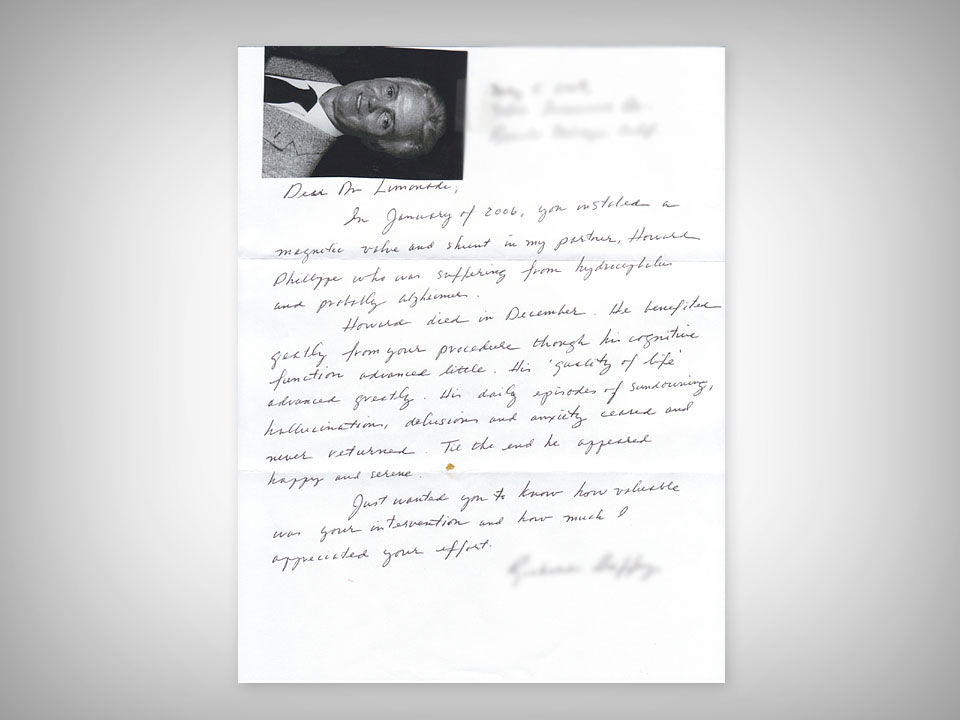 Dear Dr Limonadi,
In January of 2006, you installed a
magnetic valve and shunt in my partner, Howard
Phillipe who was suffering from hydrocephalus
and probably alzheimer.
Howard died in December. He benefited
greatly from your procedure though his cognitive
function advanced little. His 'quality of life'
advanced greatly. His daily episodes of sundowning,
hallucinations, delusions and anxiety ceased and
never returned. Til the end he appeared
happy and serene.
Just wanted you to know how valuable
was your intervention and how much I
appreciated your effort.